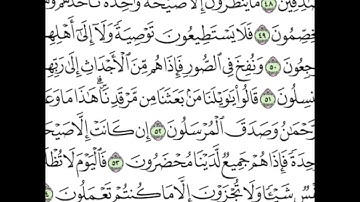 صَٰدِقِينَ ٤٨ مَا يَنظُرُونَ إِلَّا صَيْحَةً وَٰحِدَةً تَأْخُذُهُمْ وَهُمْ
يَخِصِّمُونَ ٤٩ فَلَا يَسْتَطِيعُونَ تَوْصِيَةً وَلَآ إِلَىٰٓ أَهْلِهِمْ
يَرْجِعُونَ ٥٠ وَنُفِخَ فِي ٱلصُّورِ فَإِذَا هُم مِّنَ ٱلْأَجْدَاثِ إِلَىٰ رَبِّهِمْ
يَنسِلُونَ ٥١ قَالُوا۟ يَٰوَيْلَنَا مَنۢ بَعَثَنَا مِن مَّرْقَدِنَا ۜ ۗ هَٰذَا مَا وَعَدَ
ٱلرَّحْمَٰنُ وَصَدَقَ ٱلْمُرْسَلُونَ ٥٢ إِن كَانَتْ إِلَّا صَيْحَةً
وَٰحِدَةً فَإِذَا هُمْ جَمِيعٌ لَّدَيْنَا مُحْضَرُونَ ٥٣ فَٱلْيَوْمَ لَا تُظْلَمُ
نَفْسٌ شَيْـًٔا وَلَا تُجْزَوْنَ إِلَّا مَا كُنتُمْ تَعْمَلُونَ ٥٤